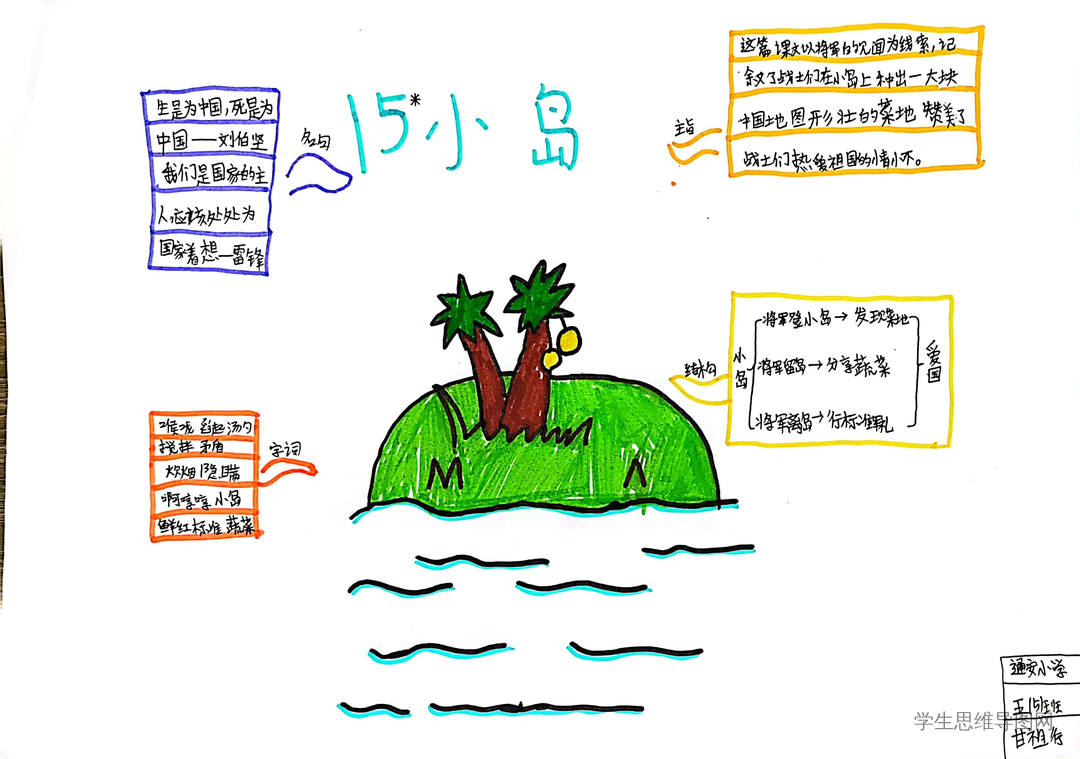 15*小岛
生是为中国，死是为
中国——刘伯坚
我们是国家的主
人应该处处为
国家着想—雷锋
名句
主旨
这篇课文以将军的见面为线索，记
叙了战士们在小岛上种出一大块
中国地图形状的菜地 赞美了
战士们热爱祖国的情怀。
结构
小岛
将军登小岛→发现菜地
将军留岛→分享蔬菜
将军离岛→行标准军礼
爱国
字词
喉咙 舀起 汤勺
搅拌 矛盾
炊烟
小岛
鲜红 标准 蔬菜
通安小学
甘祖行
学生思维导图网